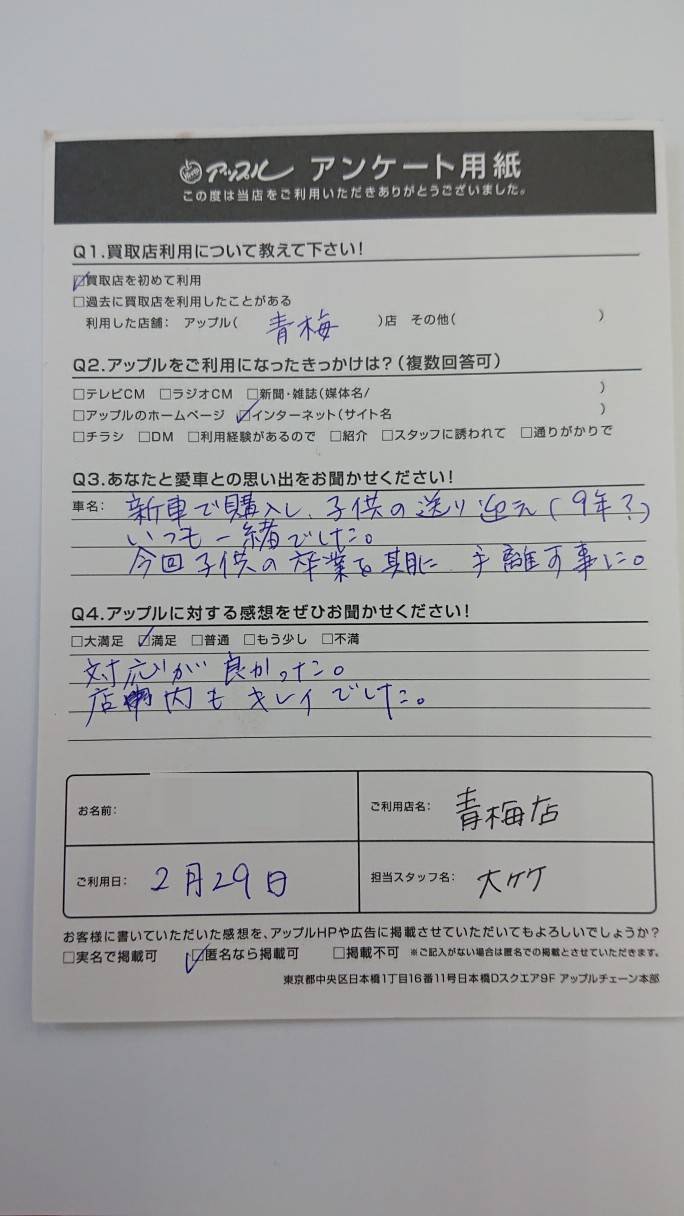 アップル アンケート用紙
この度は当店をご利用いただきありがとうございました。
Q1.買取店利用について教えて下さい!
☑買取店を初めて利用
□過去に買取店を利用したことがある
利用した店舗: アップル( 青梅 )店 その他( )
Q2.アップルをご利用になったきっかけは?(複数回答可)
□テレビCM □ラジオCM □新聞・雑誌(媒体名/ )
□アップルのホームページ ☑インターネット(サイト名 )
□チラシ □DM □利用経験があるので □紹介 □スタッフに誘われて □通りがかりで
Q3.あなたと愛車との思い出をお聞かせください!
車名: 新車で購入し、子供の送り迎え(9年?)
いつも一緒でした。
今回子供の卒業を期に、手離す事に。
Q4.アップルに対する感想をぜひお聞かせください!
□大満足 ☑満足 □普通 □もう少し □不満
対応が良かった。
店内もキレイでした。
お名前:
ご利用店名: 青梅店
ご利用日: 2月29日
担当スタッフ名: 大ケケ
お客様に書いていただいた感想を、アップルHPや広告に掲載させていただいてもよろしいでしょうか?
□実名で掲載可 ☑匿名なら掲載可 □掲載不可 ※ご記入がない場合は匿名での掲載とさせていただきます。
東京都中央区日本橋1丁目16番11号日本橋Dスクエア9F アップルチェーン本部